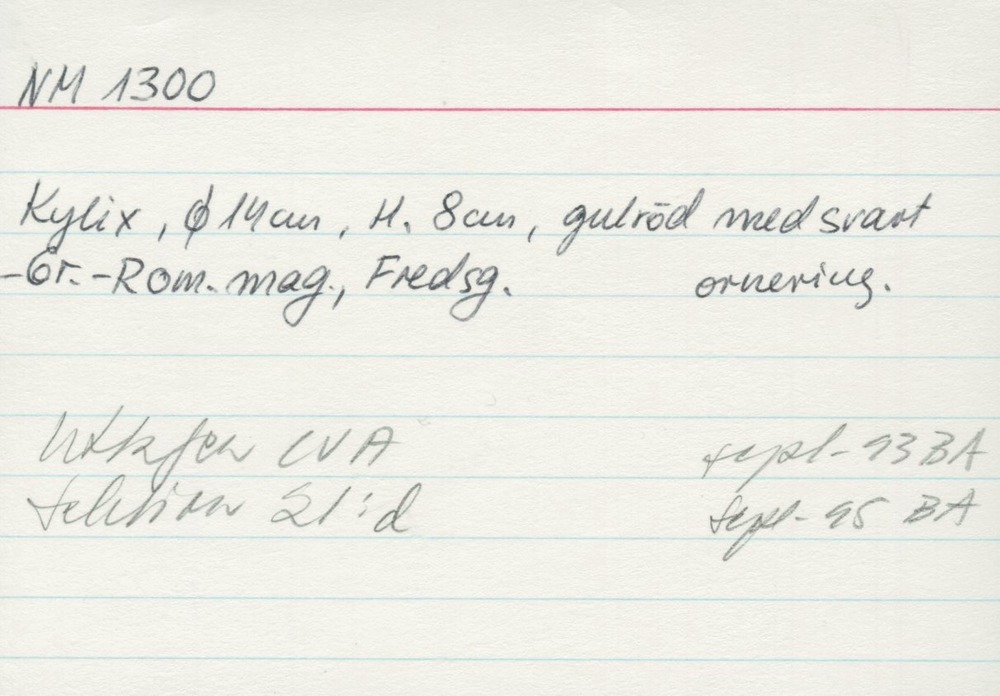 NM 1300
Kylix, ϕ 14 cm, H. 8 cm, gulröd med svart
ornering.
-Gr.-Rom. mag., Fredsg.
CVA sept-93 BA
Sektion 21:d sept-95 BA